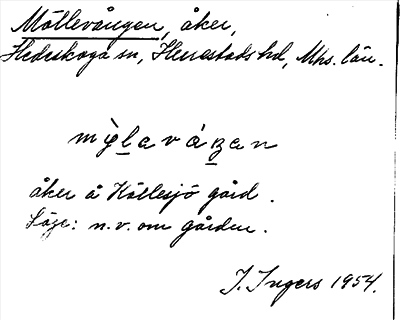 Möllevången, åker,
Hedeskoga sn, Herrestads hd, Mhs. län.
åker å Källesjö gård.
Läge: n.v. om gården.
I. Ingers 1954.